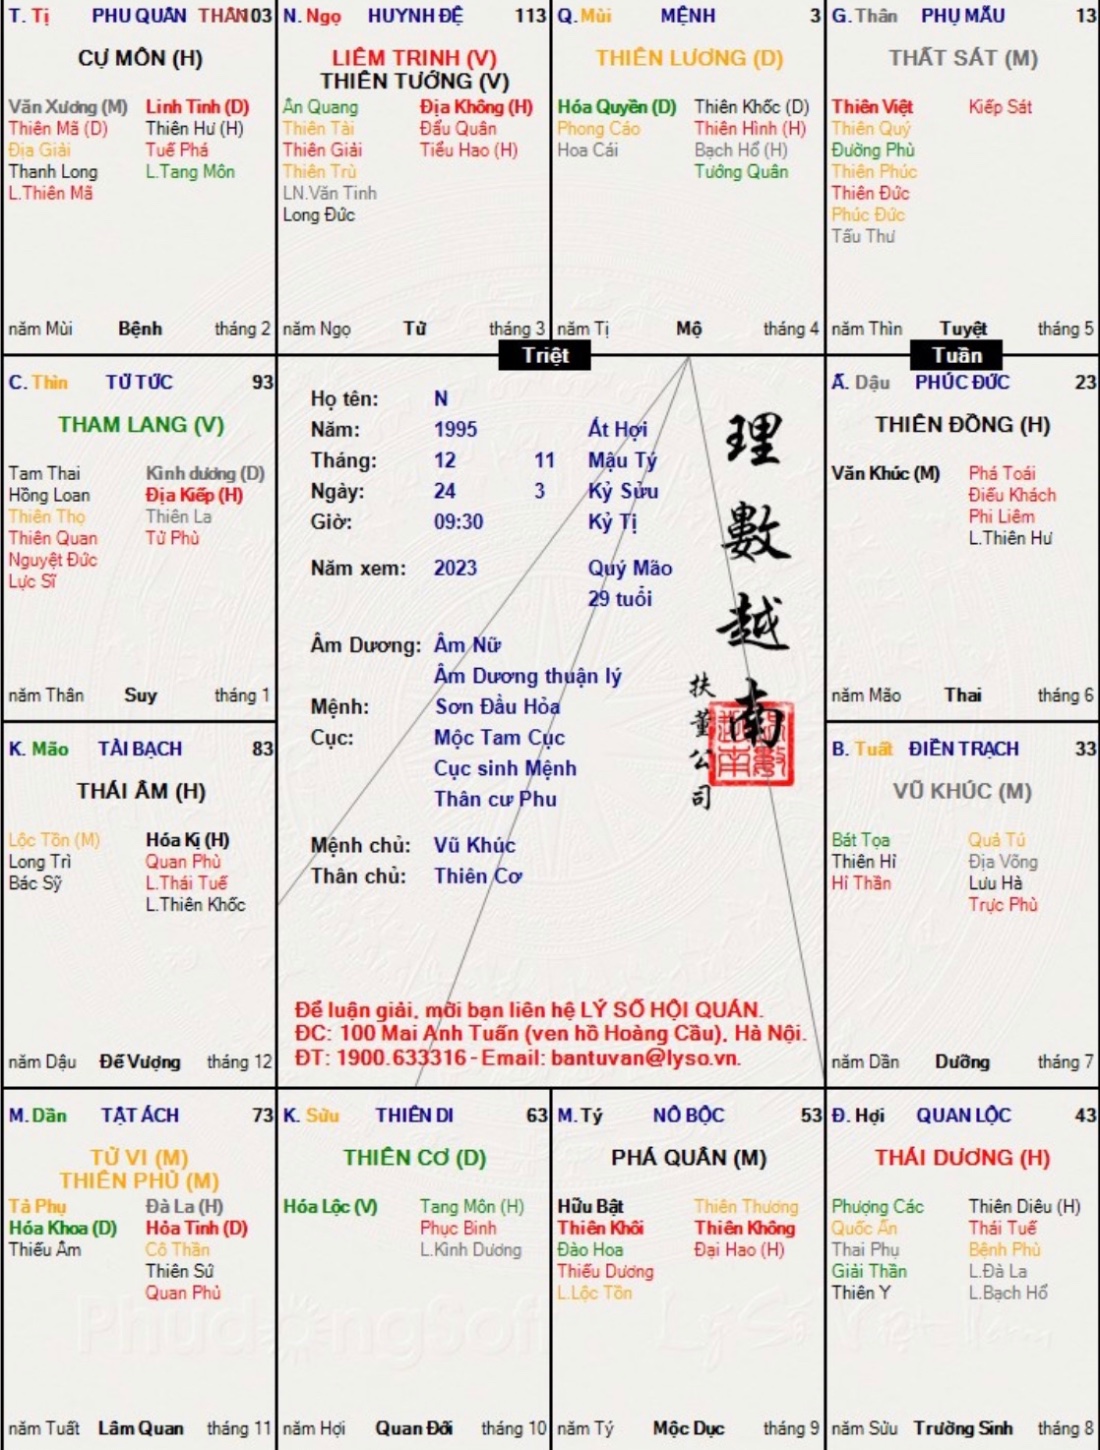 T. Tị PHU QUÂN THÂN 103
CỰ MÔN (H)
Văn Xương (M) Linh Tinh (D)
Thiên Mã (D) Thiên Hư (H)
Địa Giải Tuế Phá
Thanh Long L.Tang Môn
L.Thiên Mã
năm Mùi Bệnh tháng 2
N. Ngọ HUYNH ĐỆ 113
LIÊM TRINH (V)
THIÊN TƯỚNG (V)
Ân Quang Địa Không (H)
Thiên Tài Đẩu Quân
Thiên Giải Tiểu Hao (H)
Thiên Trù
LN.Văn Tinh
Long Đức
năm Ngọ Tử tháng 3
Q. Mùi MỆNH 3
THIÊN LƯƠNG (D)
Hóa Quyền (D) Thiên Khốc (D)
Phong Cáo Thiên Hình (H)
Hoa Cái Bạch Hổ (H)
Tướng Quân
năm Tị Mộ tháng 4
G. Thân PHỤ MẪU 13
THẤT SÁT (M)
Thiên Việt Kiếp Sát
Thiên Quý
Đường Phù
Thiên Phúc
Thiên Đức
Phúc Đức
Tấu Thư
năm Thìn Tuyệt tháng 5
Triệt
Tuần
C. Thìn TỬ TỨC 93
THAM LANG (V)
Tam Thai Kình dương (D)
Hồng Loan Địa Kiếp (H)
Thiên Thọ Thiên La
Thiên Quan Tử Phù
Nguyệt Đức
Lực Sĩ
năm Thân Suy tháng 1
Họ tên: N
Năm: 1995 Ất Hợi
Tháng: 12 11 Mậu Tý
Ngày: 24 3 Kỷ Sửu
Giờ: 09:30 Kỷ Tị
Năm xem: 2023 Quý Mão
29 tuổi
Âm Dương: Âm Nữ
Âm Dương thuận lý
Mệnh: Sơn Đầu Hỏa
Cục: Mộc Tam Cục
Cục sinh Mệnh
Thân cư Phu
Mệnh chủ: Vũ Khúc
Thân chủ: Thiên Cơ
理數越南
扶董公司
Để luận giải, mời bạn liên hệ LÝ SỐ HỘI QUÁN.
ĐC: 100 Mai Anh Tuấn (ven hồ Hoàng Cầu), Hà Nội.
ĐT: 1900.633316 - Email: bantuvan@lyso.vn.
Ấ. Dậu PHÚC ĐỨC 23
THIÊN ĐỒNG (H)
Văn Khúc (M) Phá Toái
Điếu Khách
Phi Liêm
L.Thiên Hư
năm Mão Thai tháng 6
K. Mão TÀI BẠCH 83
THÁI ÂM (H)
Lộc Tồn (M) Hóa Kị (H)
Long Trì Quan Phù
Bác Sỹ L.Thái Tuế
L.Thiên Khốc
năm Dậu Đế Vượng tháng 12
B. Tuất ĐIỀN TRẠCH 33
VŨ KHÚC (M)
Bát Tọa Quả Tú
Thiên Hỉ Địa Võng
Hỉ Thần Lưu Hà
Trực Phù
năm Dần Dưỡng tháng 7
M. Dần TẬT ÁCH 73
TỬ VI (M)
THIÊN PHỦ (M)
Tả Phụ Đà La (H)
Hóa Khoa (D) Hỏa Tinh (D)
Thiếu Âm Cô Thần
Thiên Sứ
Quan Phủ
năm Tuất Lâm Quan tháng 11
K. Sửu THIÊN DI 63
THIÊN CƠ (D)
Hóa Lộc (V) Tang Môn (H)
Phục Binh
L.Kình Dương
năm Hợi Quan Đới tháng 10
M. Tý NÔ BỘC 53
PHÁ QUÂN (M)
Hữu Bật Thiên Thương
Thiên Khôi Thiên Không
Đào Hoa Đại Hao (H)
Thiếu Dương
L.Lộc Tồn
năm Tý Mộc Dục tháng 9
Đ. Hợi QUAN LỘC 43
THÁI DƯƠNG (H)
Phượng Các Thiên Diêu (H)
Quốc Ấn Thái Tuế
Thai Phụ Bệnh Phù
Giải Thần L.Đà La
Thiên Y L.Bạch Hổ
năm Sửu Trường Sinh tháng 8